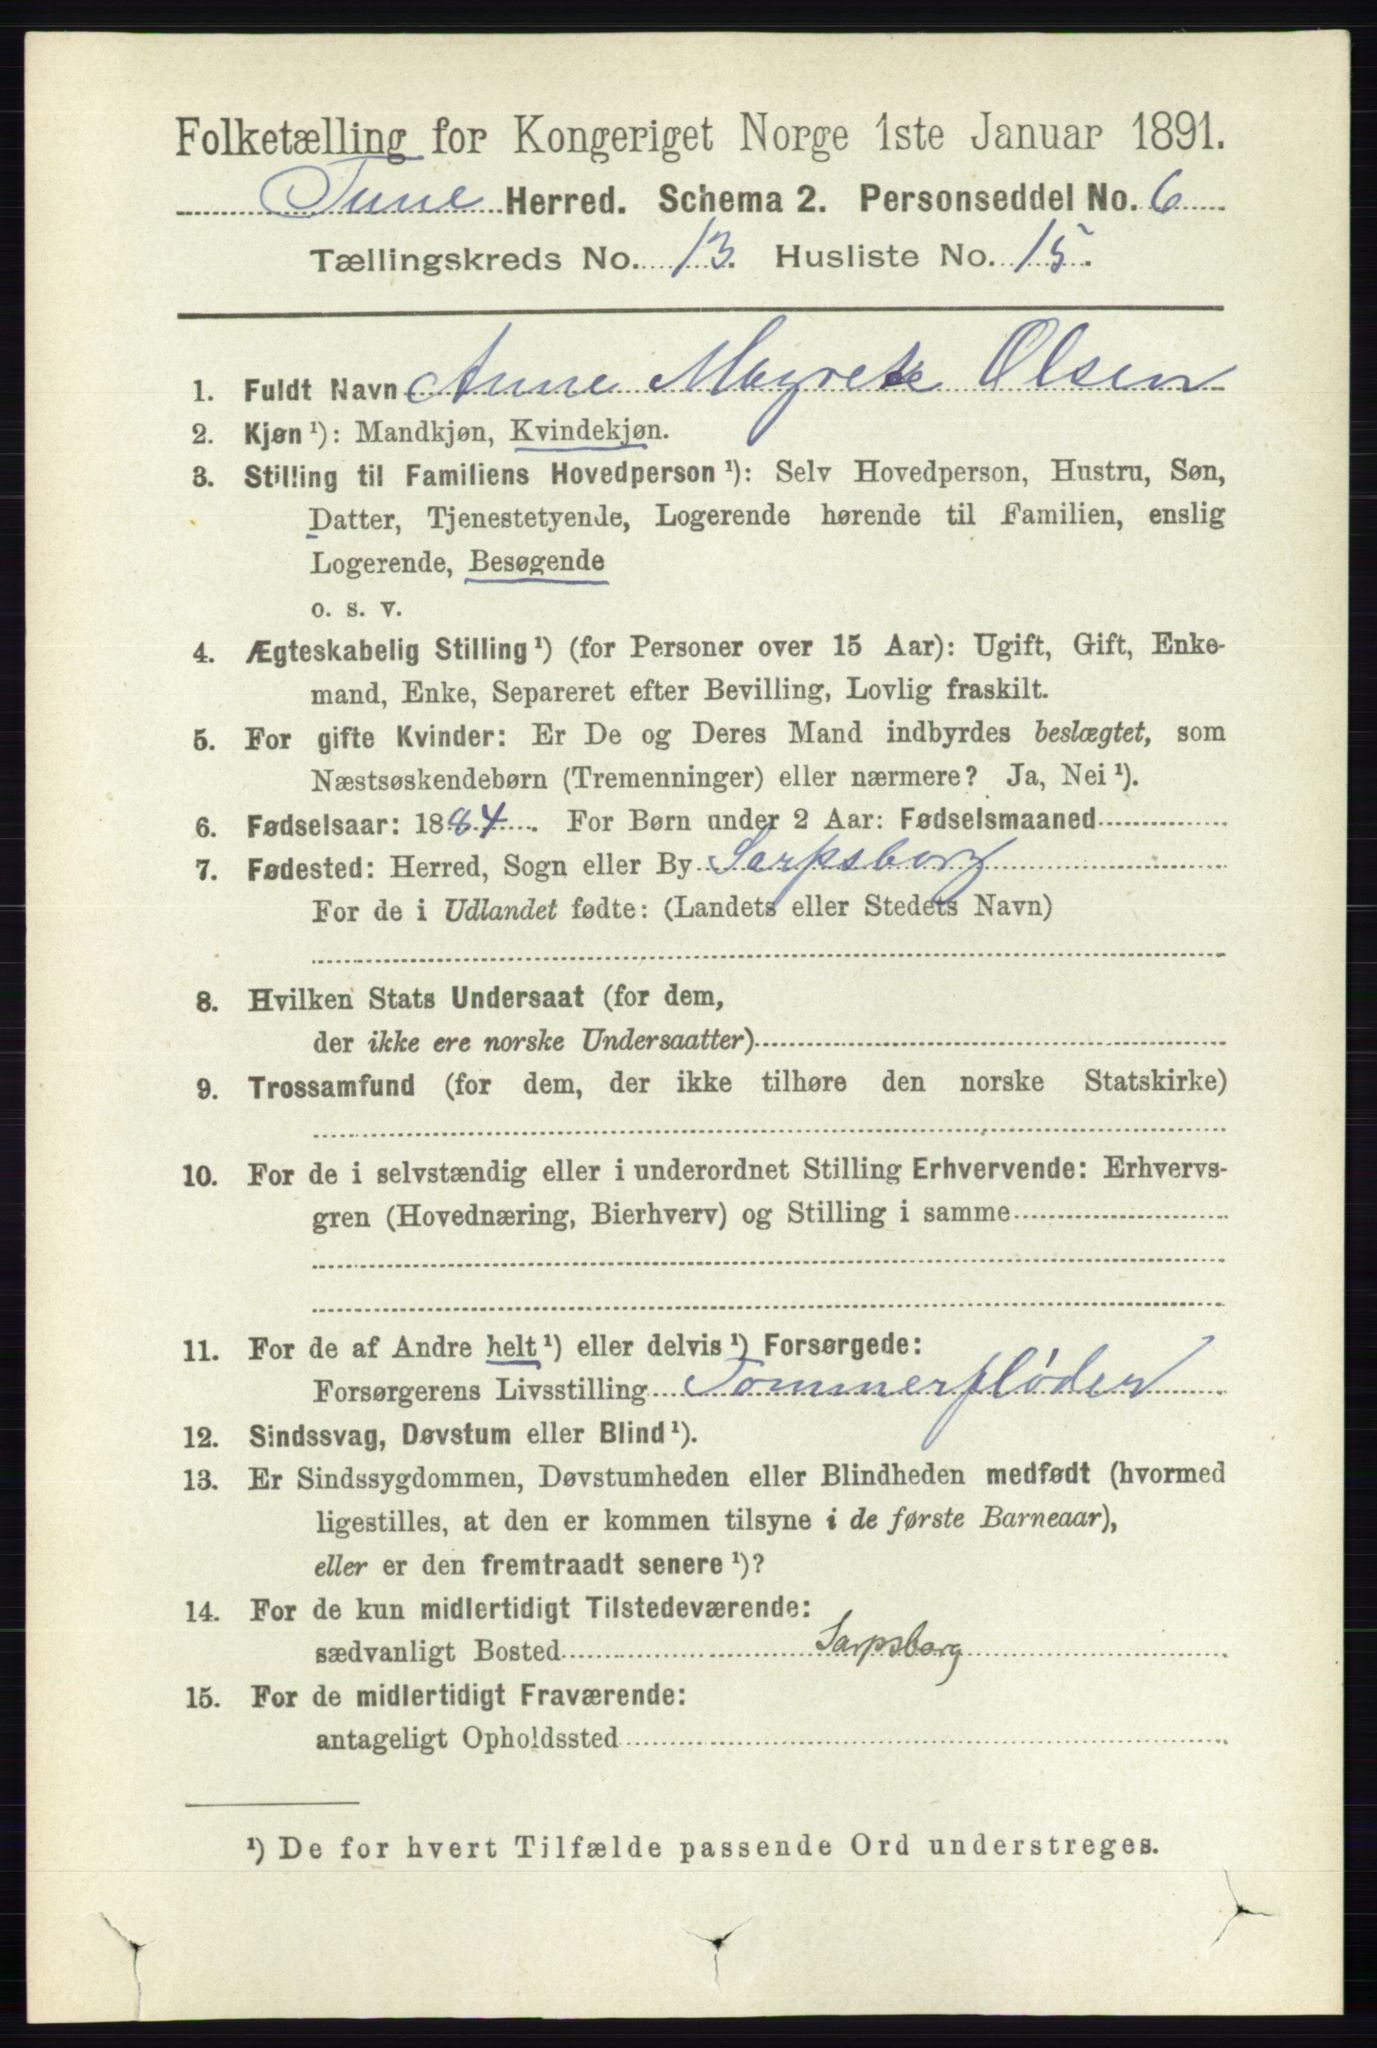 Folketælling for Kongeriget Norge 1ste Januar 1891.
Tune Herred. Schema 2. Personseddel No. 6
Tællingskreds No. 13. Husliste No. 15.
1. Fuldt Navn Anne Magrete Olsen
2. Kjøn ¹): Mandkjøn, Kvindekjøn.
3. Stilling til Familiens Hovedperson ¹): Selv Hovedperson, Hustru, Søn,
Datter, Tjenestetyende, Logerende hørende til Familien, enslig
Logerende, Besøgende
o. s. v.
4. Ægteskabelig Stilling ¹) (for Personer over 15 Aar): Ugift, Gift, Enke-
mand, Enke, Separeret efter Bevilling, Lovlig fraskilt.
5. For gifte Kvinder: Er De og Deres Mand indbyrdes beslægtet, som
Næstsøskendebørn (Tremenninger) eller nærmere? Ja, Nei ¹).
6. Fødselsaar: 1884. For Børn under 2 Aar: Fødselsmaaned
7. Fødested: Herred, Sogn eller By Sarpsborg
For de i Udlandet fødte: (Landets eller Stedets Navn)
8. Hvilken Stats Undersaat (for dem,
der ikke ere norske Undersaatter)
9. Trossamfund (for dem, der ikke tilhøre den norske Statskirke)
10. For de i selvstændig eller i underordnet Stilling Erhvervende: Erhvervs-
gren (Hovednæring, Bierhverv) og Stilling i samme
11. For de af Andre helt ¹) eller delvis ¹) Forsørgede:
Forsørgerens Livsstilling Tømmerfløder
12. Sindssvag, Døvstum eller Blind ¹).
13. Er Sindssygdommen, Døvstumheden eller Blindheden medfødt (hvormed
ligestilles, at den er kommen tilsyne i de første Barneaar),
eller er den fremtraadt senere ¹)?
14. For de kun midlertidigt Tilstedeværende:
sædvanligt Bosted Sarpsborg
15. For de midlertidigt Fraværende:
antageligt Opholdssted
¹) De for hvert Tilfælde passende Ord understreges.